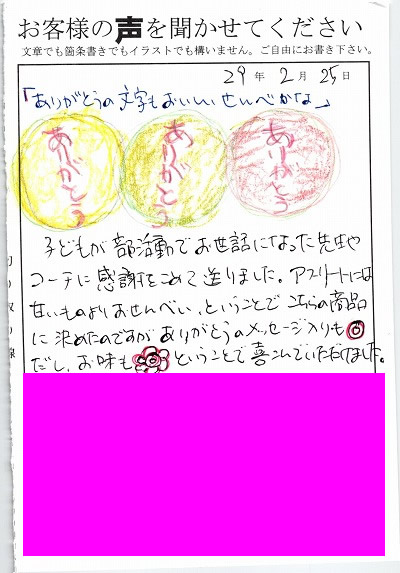 お客様の声を聞かせてください
文章でも箇条書きでもイラストでも構いません。ご自由にお書き下さい。
29年 2月 25日
「ありがとうの文字もおいしいせんべかな」
ありがとう
ありがとう
ありがとう
子どもが部活動でお世話になった先生や
コーチに感謝をこめて送りました。アスリートには
甘いものよりおせんべい、ということでこちらの商品
に決めたのですがありがとうのメッセージ入りも◎
だし、お味も◎ということで喜こんでいただけました。